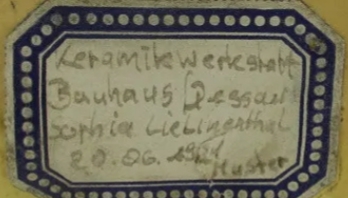 Keramikwerkstatt
Bauhaus Dessau
Sophia Lielinenthal
20.06.
Muster